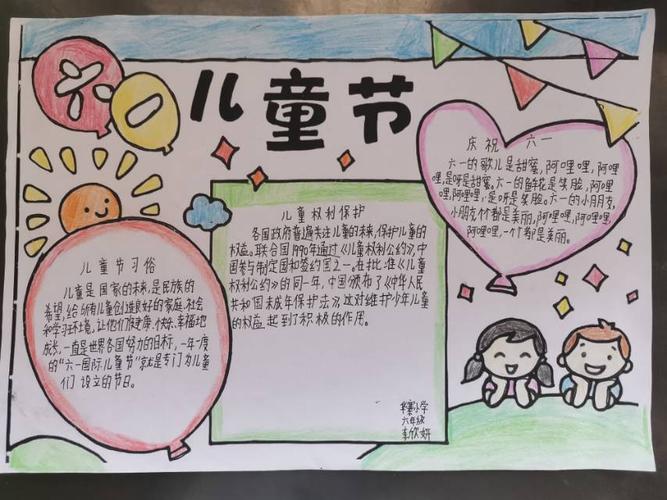 六一
儿童节
儿童节习俗
儿童是国家的未来,是民族的
希望,给所有儿童创造良好的家庭、社会
和学习环境,让他们健康、快乐、幸福地
成长,一直是世界各国努力的目标,一年一度
的“六一国际儿童节”就是专门为儿童
们设立的节日。
儿童权利保护
各国政府普遍关注儿童的未来,保护儿童的
权益。联合国1990年通过《儿童权利公约》,中
国参与制定国和签约国之一。在批准《儿童
权利公约》的同一年,中国颁布了《中华人民
共和国未成年保护法》,这对维护少年儿童
的权益起到了积极的作用。
小学
六年级
庆祝 六一
六一的歌儿是甜蜜,阿哩哩,阿哩
哩,是呀是甜蜜。六一的鲜花是笑脸,阿哩
哩,阿哩哩,是呀是笑脸。六一的小朋友,
小朋友个个都是美丽,阿哩哩,阿哩哩,
阿哩哩,一个个都是美丽。